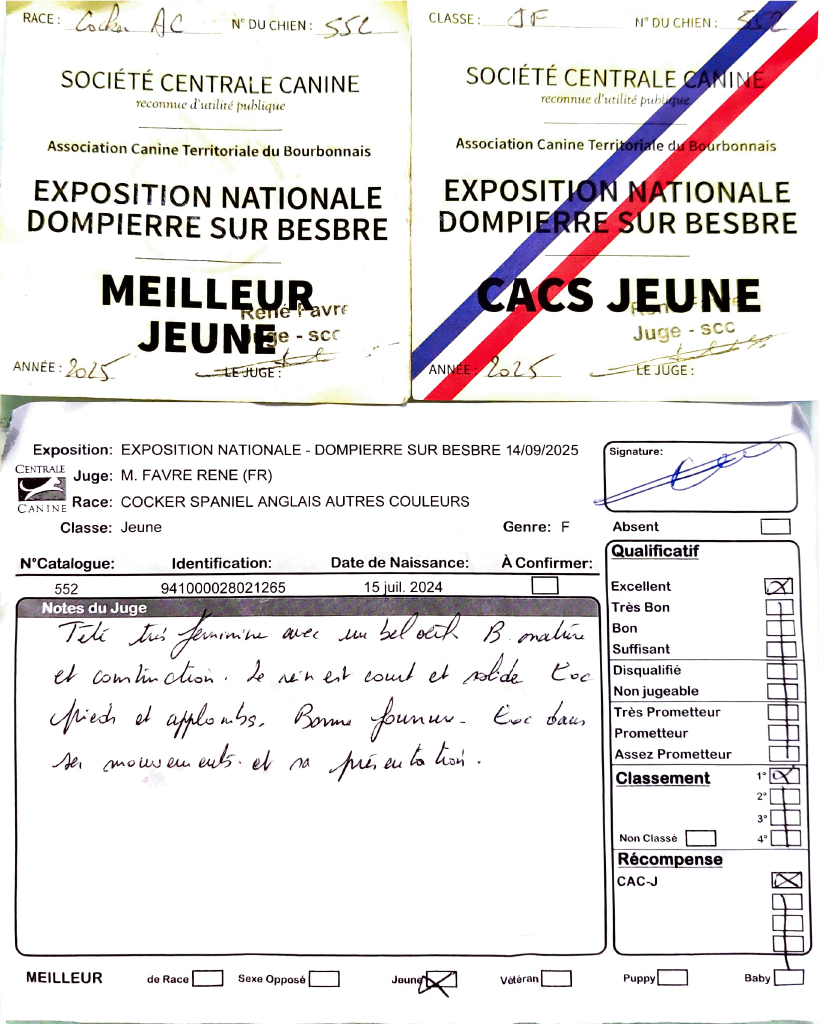 RACE : Cocker AC N° DU CHIEN : 552
SOCIÉTÉ CENTRALE CANINE
reconnue d'utilité publique
Association Canine Territoriale du Bourbonnais
EXPOSITION NATIONALE
DOMPIERRE SUR BESBRE
MEILLEUR
JEUNE
René Favre
Juge - scc
ANNÉE : 2025 LE JUGE :
CLASSE : JF N° DU CHIEN : 552
SOCIÉTÉ CENTRALE CANINE
reconnue d'utilité publique
Association Canine Territoriale du Bourbonnais
EXPOSITION NATIONALE
DOMPIERRE SUR BESBRE
CACS JEUNE
René Favre
Juge - scc
ANNÉE : 2025 LE JUGE :
Exposition: EXPOSITION NATIONALE - DOMPIERRE SUR BESBRE 14/09/2025
CENTRALE
CANINE
Juge: M. FAVRE RENE (FR)
Race: COCKER SPANIEL ANGLAIS AUTRES COULEURS
Classe: Jeune Genre: F
N°Catalogue: Identification: Date de Naissance: À Confirmer:
552 941000028021265 15 juil. 2024
Notes du Juge
Tête très féminine avec un bel oeil. B. nature
et construction. Le rein est court et solide Exc
pieds et applombs. Bonne fourrure. Exc dans
ses mouvements et sa présentation.
Signature:
Absent
Qualificatif
Excellent
Très Bon
Bon
Suffisant
Disqualifié
Non jugeable
Très Prometteur
Prometteur
Assez Prometteur
Classement 1°
2°
3°
Non Classé 4°
Récompense
CAC-J
MEILLEUR de Race Sexe Opposé Jeune Vétéran Puppy Baby